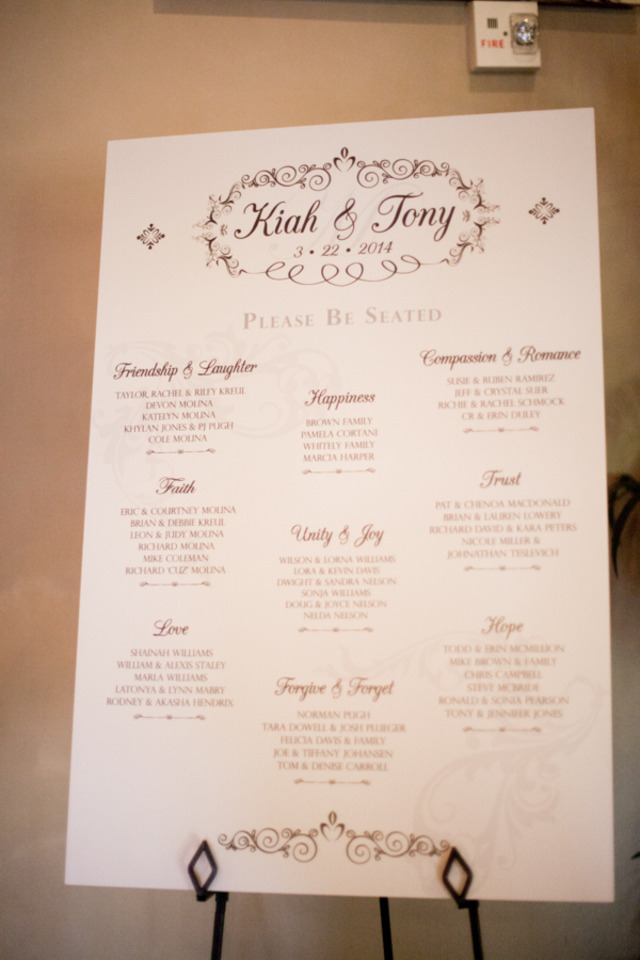 FIRE
Kiah & Tony
3 • 22 • 2014
PLEASE BE SEATED
Friendship & Laughter
TAYLOR, RACHEL & RILEY KREUL
DEVON MOLINA
KATELYN MOLINA
KHYLAN JONES & PJ PUGH
COLE MOLINA
Faith
ERIC & COURTNEY MOLINA
BRIAN & DEBBIE KREUL
LEON & JUDY MOLINA
RICHARD MOLINA
MIKE COLEMAN
RICHARD 'CUZ' MOLINA
Love
SHAINAH WILLIAMS
WILLIAM & ALEXIS STALEY
MARLA WILLIAMS
LATONYA & LYNN MABRY
RODNEY & AKASHA HENDRIX
Happiness
BROWN FAMILY
PAMELA CORTANI
WHITELY FAMILY
MARCIA HARPER
Unity & Joy
WILSON & LORNA WILLIAMS
LORA & KEVIN DAVIS
DWIGHT & SANDRA NELSON
SONJA WILLIAMS
DOUG & JOYCE NELSON
NELDA NELSON
Forgive & Forget
NORMAN PUGH
TARA DOWELL & JOSH PLUEGER
FELICIA DAVIS & FAMILY
JOE & TIFFANY JOHANSEN
TOM & DENISE CARROLL
Compassion & Romance
SUSIE & RUBEN RAMIREZ
JEFF & CRYSTAL SLIER
RICHIE & RACHEL SCHMOCK
CR & ERIN DULEY
Trust
PAT & CHENOA MACDONALD
BRIAN & LAUREN LOWERY
RICHARD DAVID & KARA PETERS
NICOLE MILLER &
JOHNATHAN TESLEVICH
Hope
TODD & ERIN MCMILLION
MIKE BROWN & FAMILY
CHRIS CAMPBELL
STEVE MCBRIDE
RONALD & SONIA PEARSON
TONY & JENNIFER JONES